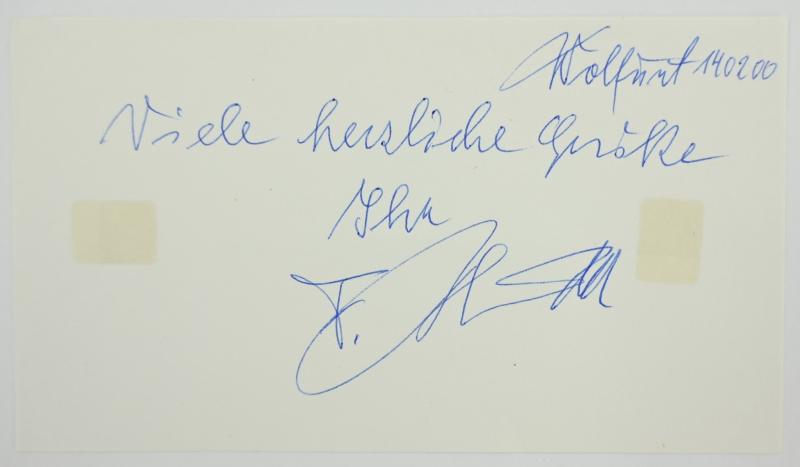 Wolfurt 140200
Viele herzliche Grüße
Ihr
F.